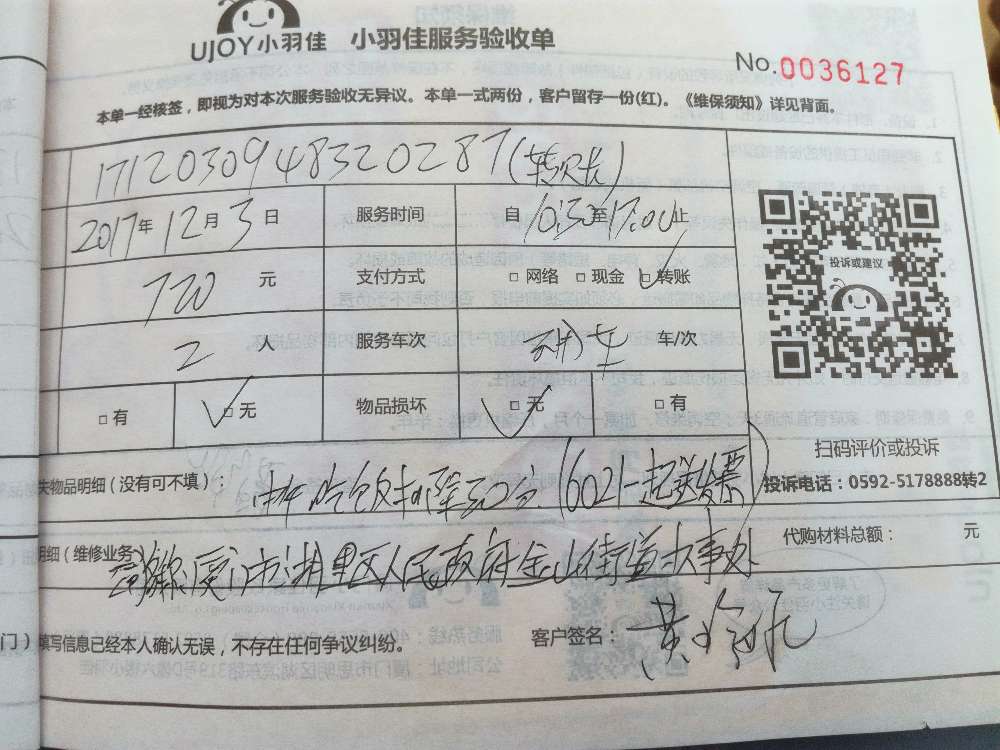 UJOY小羽佳 小羽佳服务验收单
No.0036127
本单一经核签，即视为对本次服务验收无异议。本单一式两份，客户留存一份(红)。《维保须知》详见背面。
1712030948320287(转次长)
2017年12月3日 服务时间 自 10:30至17:00止
720 元 支付方式 □网络 □现金 □转账
2 人 服务车次 车/次
□有 □无 物品损坏 □无 □有
投诉或建议
扫码评价或投诉
投诉电话：0592-5178888转2
失物品明细（没有可不填）： 中午吃饭扣除30分(602一起送发票)
明细（维修业务） 厦门市湖里区人民政府金山街道办事处
代购材料总额： 元
门）填写信息已经本人确认无误，不存在任何争议纠纷。 客户签名： 黄